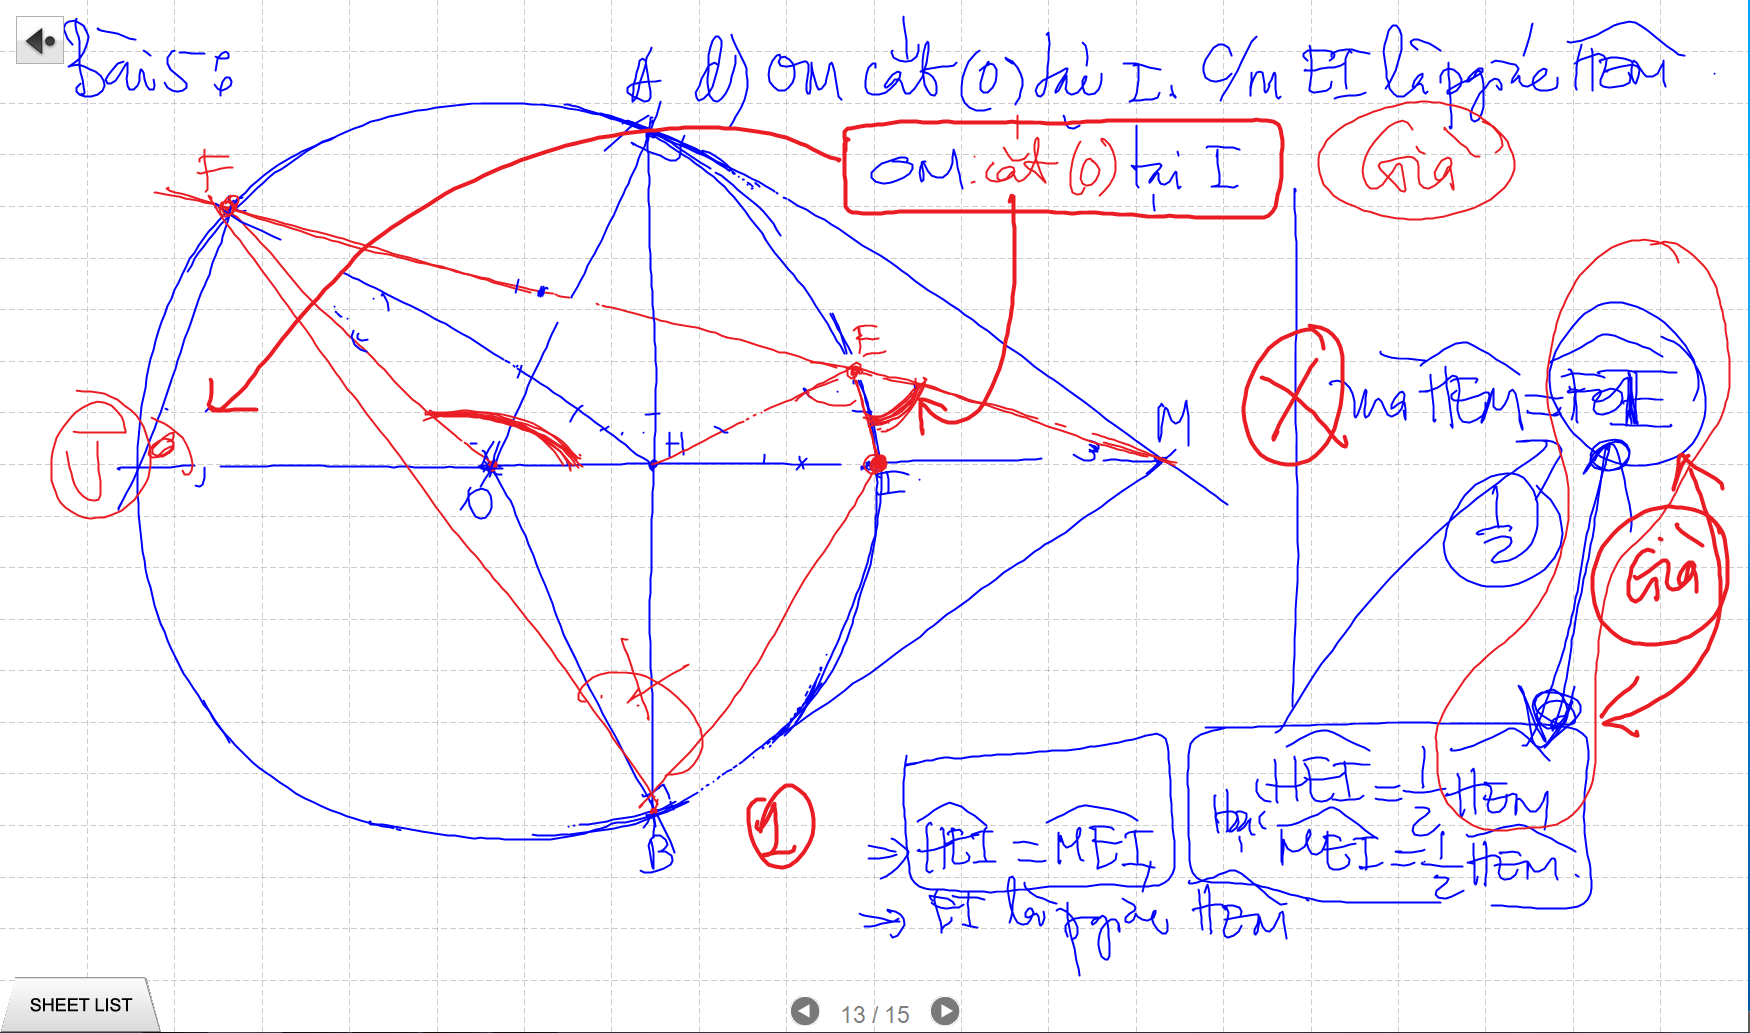 Bài 5:
A d) OM cắt (O) tại I. C/m EI là pgiác HEM
OM cắt (O) tại I
Giả
F
E
M
H
J
J
O
I
X mà HEM = FOI
1/2
Giả
B
1
⇒ HEI = MEI
Hoặc HEI = 1/2 HEM
MEI = 1/2 HEM.
⇒ EI là pgiác HEM
SHEET LIST
13 / 15